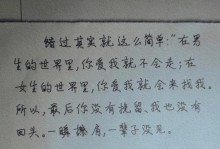 错过其实就这么简单:"在男
生的世界里,你爱我就不会走;在
女生的世界里,你爱我就会来找我。
所以,最后你没有挽留。我也没有
回头。一瞬擦肩,一辈子没见。